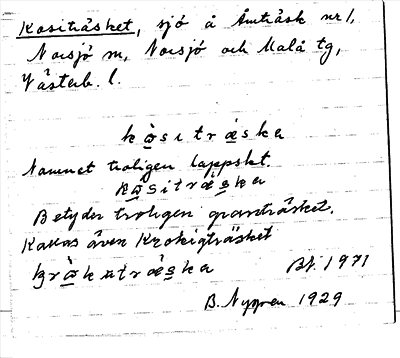 Kositräsket, sjö å Åmträsk nr 1,
Norsjö sn, Norsjö och Malå tg,
Västerb. l.
kò̲sitrǽska
Namnet troligen lappskt.
kò̲sitrǽs̲ka
Betyder troligen granträsket.
Kallas även Krokigträsket
krò̲kutrǽs̲ka Bl. 1971
B. Nygren 1929